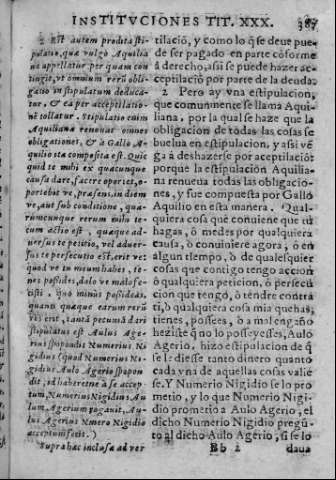 INSTITVCIONES TIT. XXX. 387
2 Est autem prodita sti-
pulatio, quæ vulgò Aquilia
na appellatur per quam con
tingit, vt omnium rerũ obli-
gatio in stipulatum deduca-
tur, & ea per acceptilatio-
nē tollatur. Stipulatio enim
Aquiliana renouat omnes
obligationes, & à Gallo A-
quilio ita composita est. Quic
quid te mihi ex quacunque
causa dare, facere oportet, o-
portebit ve, præsens, in diem
ve, aut sub conditione, qua-
rumcunque rerum mihi te-
cum actio est, quæque ad-
uersus te petitio, vel aduer-
sus te persecutio est, erit ve:
quod ve tu meum habes, te-
nes possides, dolo ve malo fe-
cisti, quò minus possideas,
quanti quæque earum rerũ
res erit, tantã pecuniã dari
stipulatus est Aulus Age-
rius spopondit Numerius Ni
gidius (quod Numerius Ni-
gidius Aulo Agerio spopon
dit, id haberetne à se accep-
tum, Numerius Nigidius Au
lum Agerium rogauit, Au-
lus Agerius Numerio Nigidio
acceptum fecit.)
Suprahac inclusa ad ver
tilació, y como lo q̃ se deue pue-
de ser pagado en parte cõforme
á derecho, assi se puede hazer ac
ceptilació por parte de la deuda.
2 Pero ay vna estipulacion,
que comunmente se llama Aqui-
liana, por la qual se haze que la
obligacion de todas las cosas se
buelua en estipulacion, y assi vẽ-
ga à deshazerse por aceptilació:
porque la estipulación Aquilia-
na renueua todas las obligacio-
nes, y fue compuesta por Gallo
Aquilio en esta manera. Qual-
quiera cosa q̃ue conuiene que tu
hagas, ò medes por qualquiera
causa, ò conuiniere agora, ò en
algun tiempo, ò de qualesquier
cosas que contigo tengo accion
ò qualquiera peticion, ò persecú
cion que tengó, ò tendre contra
ti, ò qualquiera cosa mia que has,
tienes, posses, ò a mal engaño
heziste q̃ no lo possyesses, Aulo
Agerio, hizo estipulacion de q̃
se le diesse tanto dinero quanto
cada vna de aquellas cosas valié
se. Y Numerio Nigidio se lo pro
metio, y lo que Numerio Nigi-
dio prometio a Aulo Agerio, el
dicho Numerio Nigidio pregũ-
tò al dicho Aulo Agerio, si se lo
Bb 2 daua